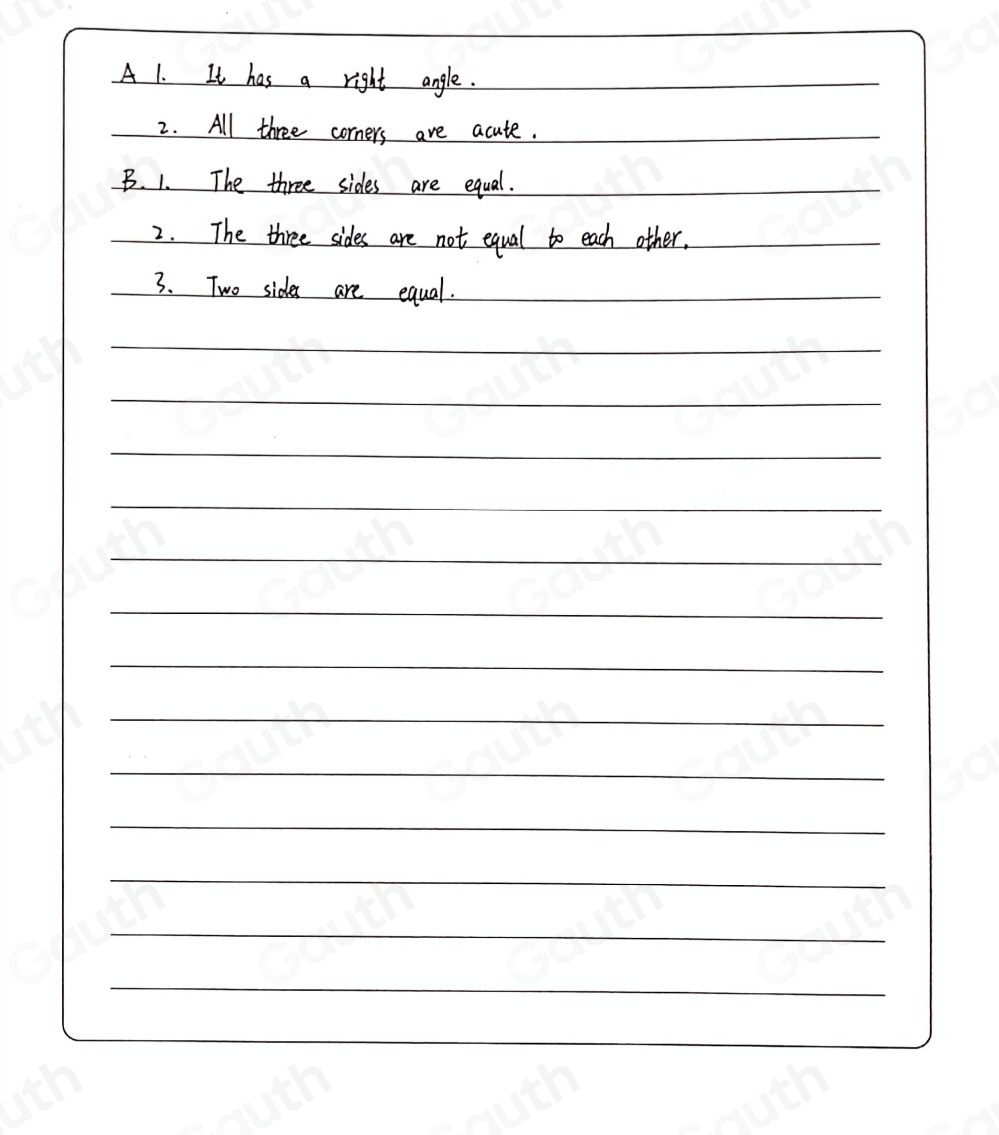 A 1. It has a right angle.
2. All three corners are acute.
B. 1. The three sides are equal.
2. The three sides are not equal to each other.
3. Two sides are equal.